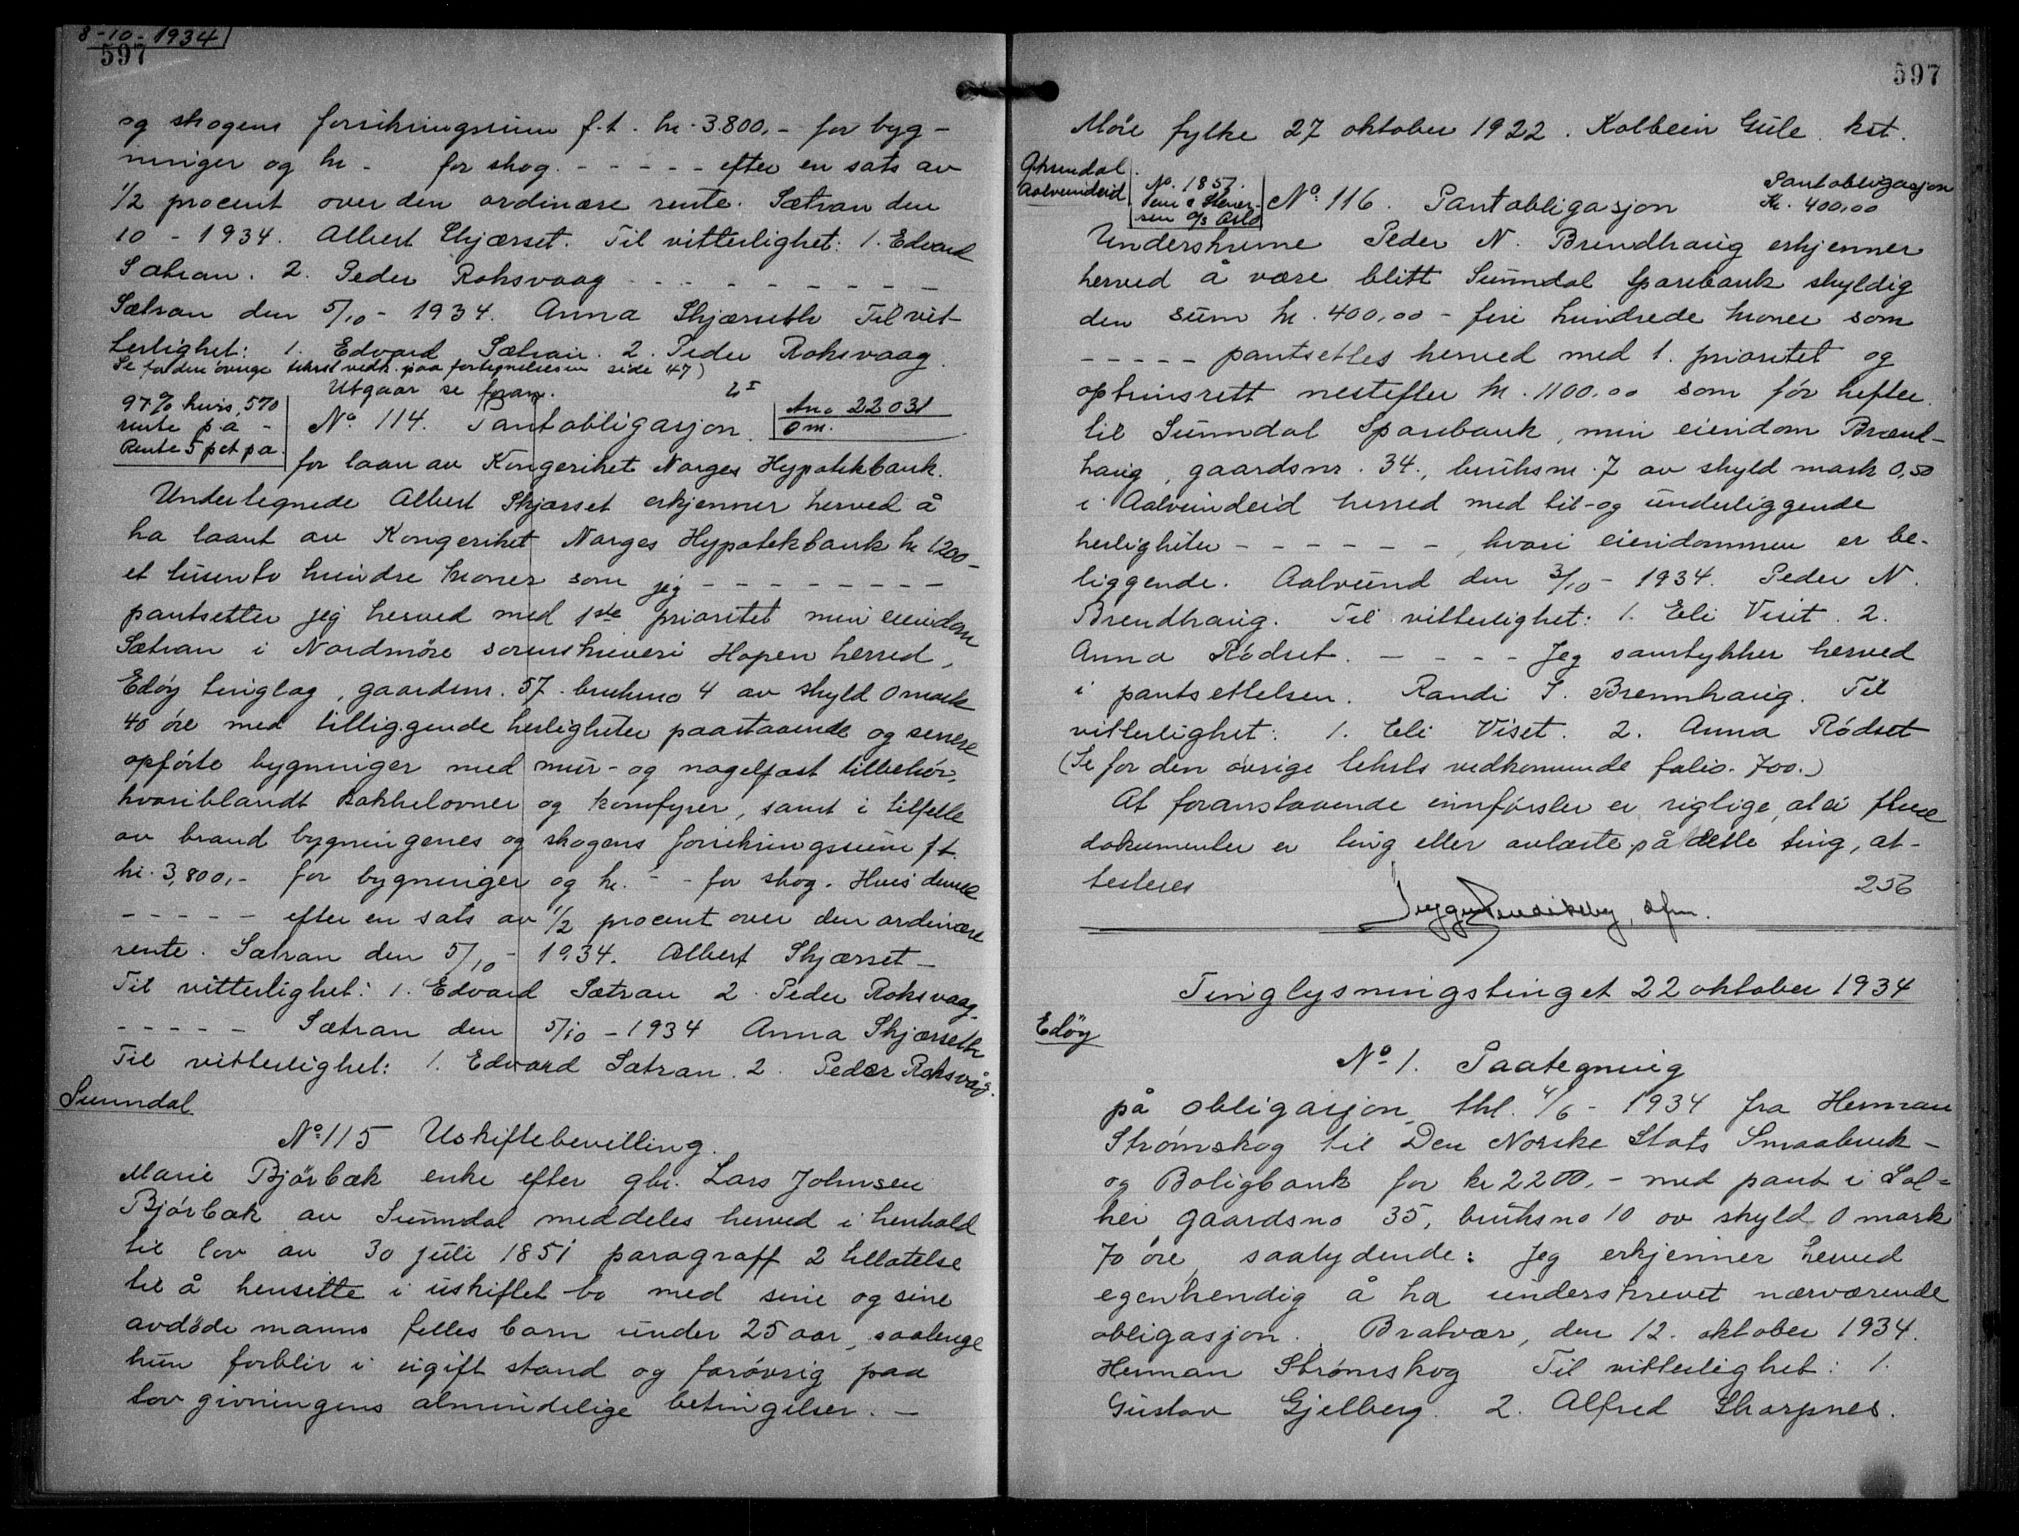 8-10-1934
597
og skogens forsikringssum f.t. kr. 3.800,- for byg-
ninger og kr - for skog. - - - - - efter en sats av
1/2 procent over den ordinære rente. Sætran den
10 - 1934. Albert Skjærset. Til vitterlighet: 1. Edvard
Sætran. 2. Peder Roksvaag - - - - - - - -
Sætran den 5/10 - 1934. Anna Skjærseth Til vit-
terlighet: 1. Edvard Sætran. 2. Peder Roksvaag.
Se for den øvrige tekst vedk. paa fortegnelsen side 47)
Utgaar se foran.
97% kurs, 5%
rente p.a -
Rente 5 pct p a.
No 114. Pantobligasjon.
Ano 22031
O m.
for laan av Kongeriket Norges Hypotekbank.
Undertegnede Albert Skjærset erkjenner herved å
ha laant av Kongeriket Norges Hypotekbank kr 1200-
et tusen to hundre kroner som jeg - - - - - - - -
pantsetter jeg herved med 1ste prioritet min eiendom
Sætran i Nordmøre sorenskriveri Hopen herred,
Edøy tinglag, gaardsnr. 57. bruksno 4 av skyld 0 mark
40 øre med tilliggende herligheter paastaaende og senere
opførte bygninger med mur- og nagelfast tilbehør,
hvoriblandt kakkelovner og komfyrer, samt i tilfelle
av brand bygningenes og skogens forsikringssum f.t.
kr. 3,800,- for bygninger og kr. - - for skog. Hvis denne
- - - - - efter en sats av 1/2 procent over den ordinære
rente. Sætran den 5/10 - 1934. Albert Skjærset -
Til vitterlighet: 1. Edvard Sætran 2. Peder Roksvaag.
- - - - - Sætran den 5/10 - 1934 Anna Skjærseth
Til vitterlighet: 1. Edvard Sætran. 2. Peder Roksvåg.
Sunndal
No 115 Uskiftebevilling.
Marie Bjørbæk enke efter gbr. Lars Johnsen
Bjørbæk av Sunndal meddeles herved i henhold
til lov av 30 juli 1851 paragraff 2 tillatelse
til å hensitte i uskiftet bo med sine og sine
avdøde manns felles barn under 25 aar, saalenge
hun forblir i ugift stand og forøvrig paa
lovgivningens almindelige betingelser. -
597
Møre fylke 27 oktober 1922. Kolbein Gule kst.
Øksendal.
Aalvundeid
No. 1857.
Oslo
No 116. Pantobligasjon
Pantobligasjon
Kr. 400,00
Underskrevne Peder N. Brendhaug erkjenner
herved å være blitt Sunndal Sparebank skyldig
den sum kr. 400,00 - fire hundrede kroner som
- - - - - pantsettes herved med 1. prioritet og
optrinsrett nestefter kr. 1100,00 som før hefter
til Sunndal Sparebank, min eiendom Brænd-
haug, gaardsnr. 34., bruksnr. 7 av skyld mark 0,50
i Aalvundeid herred med til- og underliggende
herligheter - - - - - -, hvori eiendommen er be-
liggende. Aalvund den 3/10 - 1934. Peder N.
Brendhaug. Til vitterlighet: 1. Eli Viset. 2.
Anna Rødset. - - - - Jeg samtykker herved
i pantsettelsen. Randi I. Brennhaug. Til
vitterlighet: 1. Eli Viset. 2. Anna Rødset
(Se for den øvrige teksts vedkommende folio. 700.)
At foranstaaende innførsler er riglige, at ei flere
dokumenter er ting eller avlæste på dette ting, at-
testeres
256
Tinglysningstinget 22 oktober 1934
Edøy
No 1. Paategning
på obligasjon thl. 4/6 - 1934 fra Herman
Strømskog til Den Norske Stats Smaabruk-
og Boligbank for kr 2200,- med pant i Sol-
hei gaardsno 35, bruksno 10 av skyld 0 mark
70 øre, saalydende: Jeg erkjenner herved
egenhendig å ha underskrevet nærværende
obligasjon. Bratvær, den 12. oktober 1934.
Herman Strømskog Til vitterlighet: 1.
Gustav Gjelberg. 2. Alfred Skarpnes.